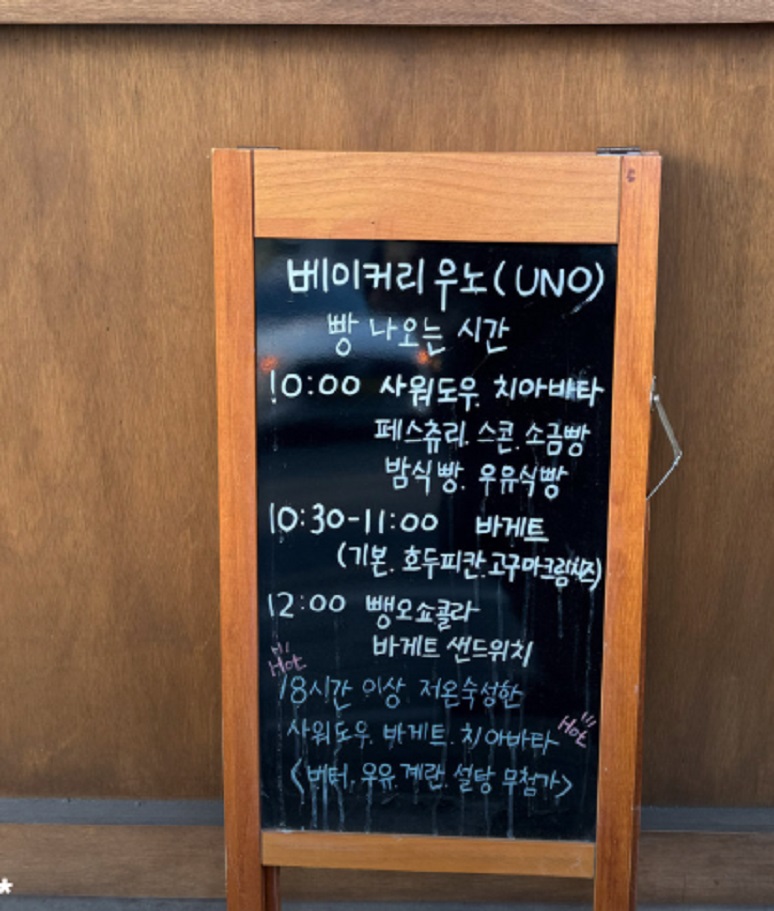 베이커리 우노(UNO)
빵 나오는 시간
10:00 사워도우. 치아바타
페스츄리. 스콘. 소금빵
밤식빵. 우유식빵
10:30-11:00 바게트
(기본. 호두피칸. 고구마크림치즈)
12:00 뺑오쇼콜라
바게트 샌드위치
Hot
18시간 이상 저온숙성한
사워도우. 바게트. 치아바타
Hot
<버터. 우유. 계란. 설탕 무첨가>
*